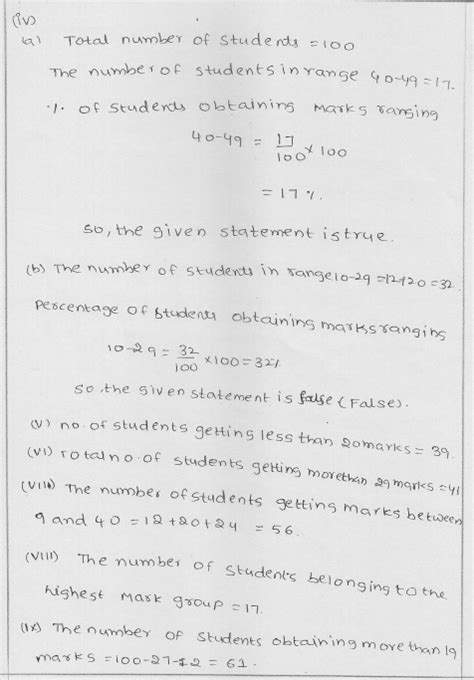 (iv)
(a) Total number of students = 100
The number of students in range 40-49 = 17.
·/. of students obtaining marks ranging
40-49 = 17/100 × 100
= 17 %.
so, the given statement is true.
(b) The number of students in range 10-29 = 12+20 = 32
Percentage of students obtaining marks ranging
10-29 = 32/100 × 100 = 32%
so, the given statement is false (False).
(v) no. of students getting less than 20 marks = 39.
(vi) Total no. of students getting more than 29 marks = 41
(viii) The number of students getting marks between
9 and 40 = 12+20+24 = 56.
(viii) The number of students belonging to the
highest mark group = 17.
(ix) The number of students obtaining more than 19
marks = 100-27-12 = 61.